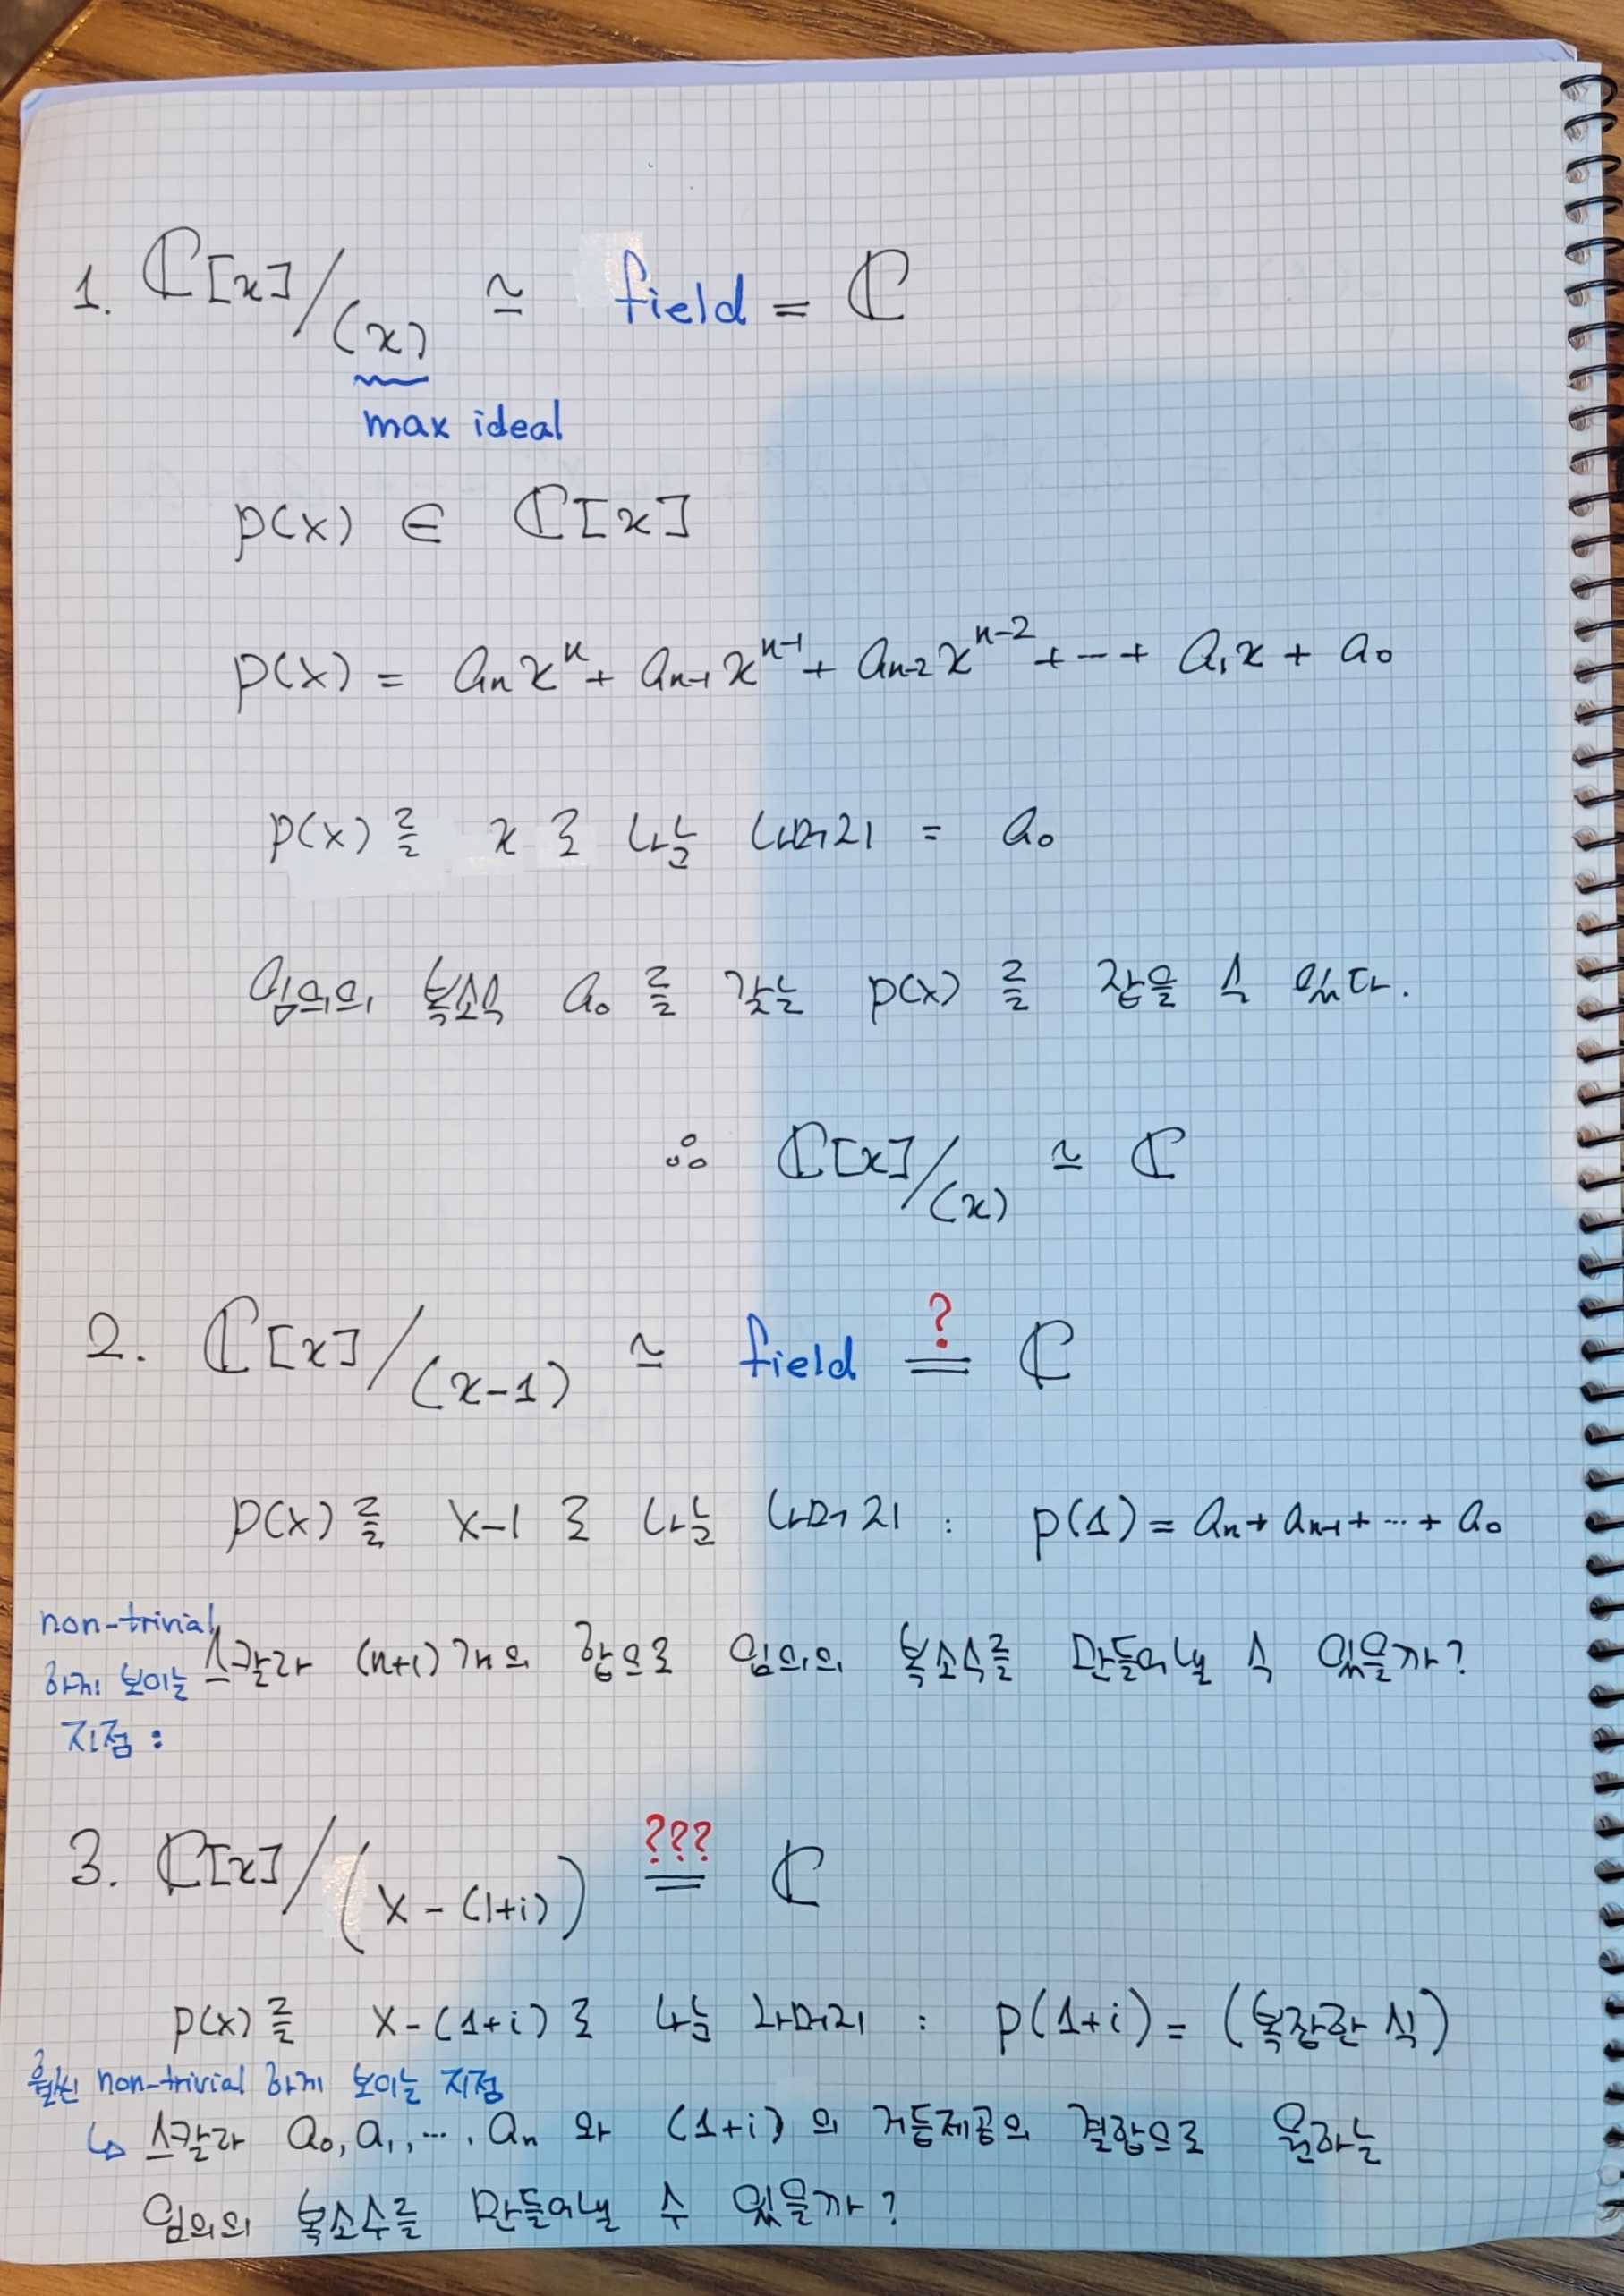 1. ℂ[x]/(x) ≃ field = ℂ
max ideal
p(x) ∈ ℂ[x]
p(x) = aₙxⁿ + aₙ₋₁xⁿ⁻¹ + aₙ₋₂xⁿ⁻² + ⋯ + a₁x + a₀
p(x)를 x로 나눈 나머지 = a₀
임의의 복소수 a₀를 갖는 p(x)를 잡을 수 있다.
∴ ℂ[x]/(x) ≃ ℂ
2. ℂ[x]/(x-1) ≃ field =? ℂ
p(x)를 x-1로 나눈 나머지 : p(1) = aₙ + aₙ₋₁ + ⋯ + a₀
non-trivial
하게 보이는
지점 :
스칼라 (n+1)개의 합으로 임의의 복소수를 만들어낼 수 있을까?
3. ℂ[x]/(x-(1+i)) =??? ℂ
p(x)를 x-(1+i)로 나눈 나머지 : p(1+i) = (복잡한 식)
훨씬 non-trivial 하게 보이는 지점
↳ 스칼라 a₀, a₁, ⋯, aₙ 와 (1+i)의 거듭제곱의 결합으로 원하는
임의의 복소수를 만들어낼 수 있을까?